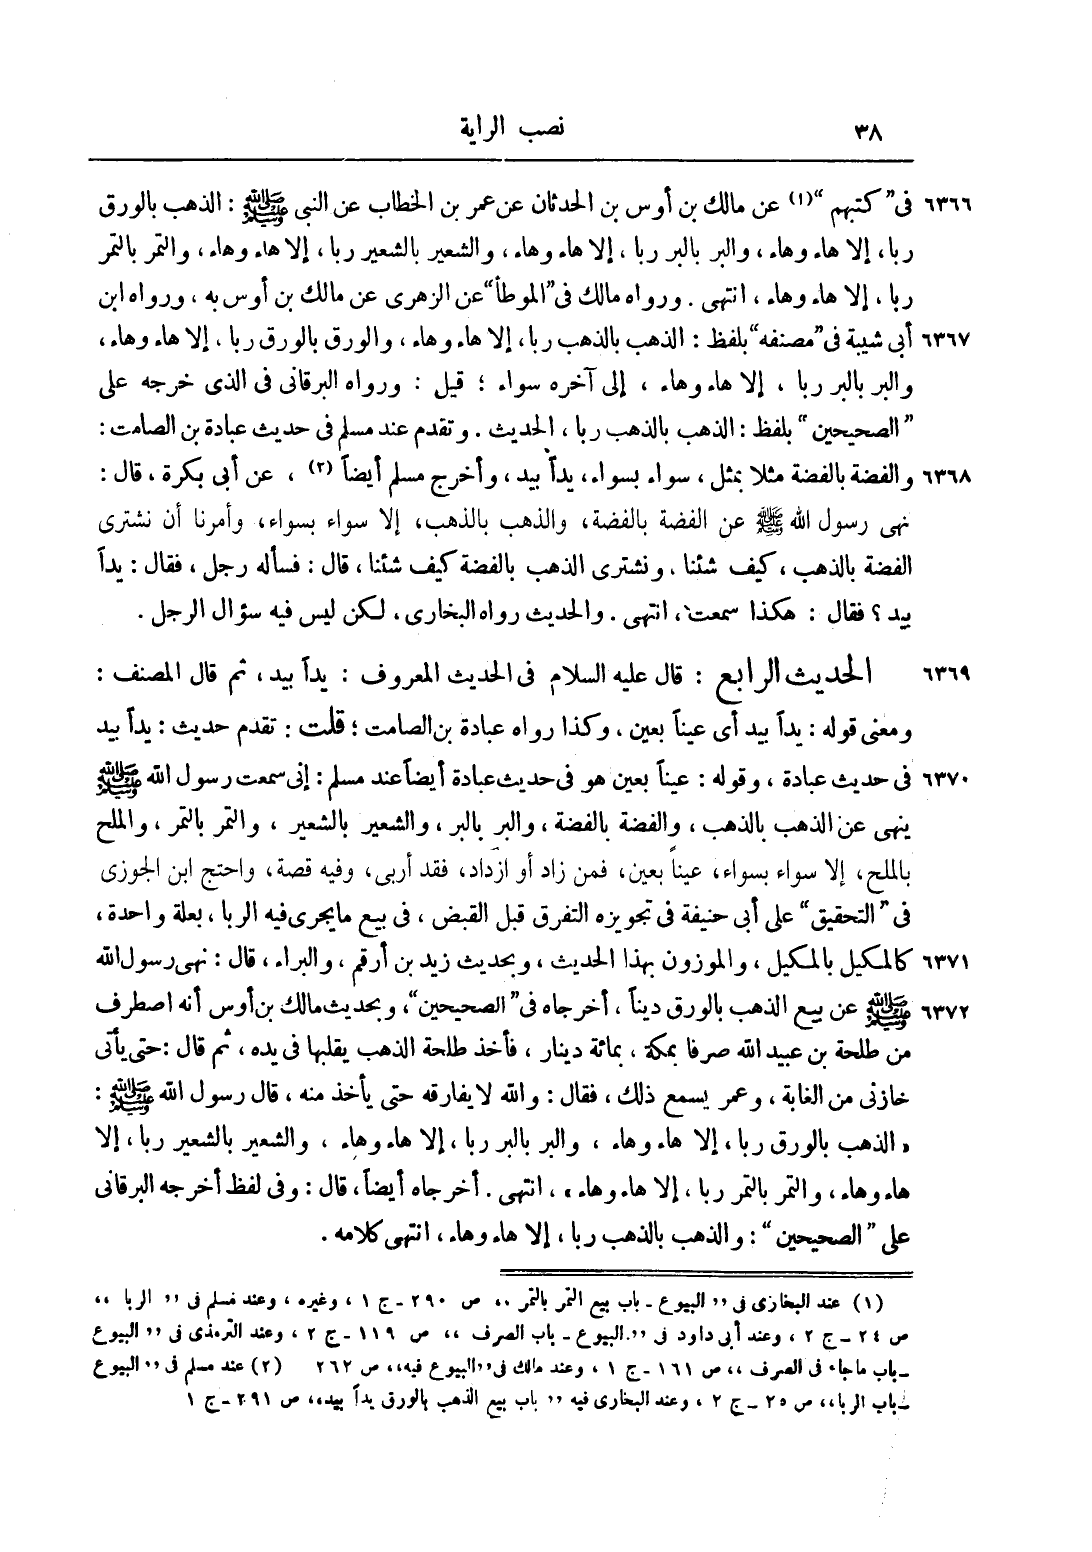 ٣٨ نصب الراية
٦٣٦٦ فى "كتبهم" (١) عن مالك بن أوس بن الحدثان عن عمر بن الخطاب عن النبى ﷺ : الذهب بالورق
ربا ، إلا هاء وهاء ، والبر بالبر ربا ، إلا هاء وهاء ، والشعير بالشعير ربا ، إلا هاء وهاء ، والتمر بالتمر
ربا ، إلا هاء وهاء ، انتهى . ورواه مالك فى "الموطأ" عن الزهرى عن مالك بن أوس به ، ورواه ابن
٦٣٦٧ أبى شيبة فى "مصنفه" بلفظ : الذهب بالذهب ربا ، إلا هاء وهاء ، والورق بالورق ربا ، إلا هاء وهاء ،
والبر بالبر ربا ، إلا هاء وهاء ، إلى آخره سواء ؛ قيل : ورواه البرقانى فى الذى خرجه على
"الصحيحين" بلفظ : الذهب بالذهب ربا ، الحديث . وتقدم عند مسلم فى حديث عبادة بن الصامت :
٦٣٦٨ والفضة بالفضة مثلا بمثل ، سواء بسواء ، يداً بيد ، وأخرج مسلم أيضاً (٢) ، عن أبى بكرة ، قال :
نهى رسول الله ﷺ عن الفضة بالفضة، والذهب بالذهب، إلا سواء بسواء، وأمرنا أن نشترى
الفضة بالذهب ، كيف شئنا ، ونشترى الذهب بالفضة كيف شئنا ، قال : فسأله رجل ، فقال : يداً
بيد ؟ فقال : هكذا سمعت ، انتهى . والحديث رواه البخارى ، لكن ليس فيه سؤال الرجل .
٦٣٦٩ الحديث الرابع : قال عليه السلام فى الحديث المعروف : يداً بيد ، ثم قال المصنف :
ومعنى قوله : يداً بيد أى عيناً بعين ، وكذا رواه عبادة بن الصامت ؛ قلت : تقدم حديث : يداً بيد
٦٣٧٠ فى حديث عبادة ، وقوله : عيناً بعين هو فى حديث عبادة أيضاً عند مسلم : إنى سمعت رسول الله ﷺ
ينهى عن الذهب بالذهب ، والفضة بالفضة ، والبر بالبر ، والشعير بالشعير ، والتمر بالتمر ، والملح
بالملح، إلا سواء بسواء، عيناً بعين، فمن زاد أو ازداد، فقد أربى، وفيه قصة، واحتج ابن الجوزى
فى "التحقيق" على أبى حنيفة فى تجويزه التفرق قبل القبض ، فى بيع ما يجرى فيه الربا ، بعلة واحدة ،
٦٣٧١ كالمكيل بالمكيل ، والموزون بهذا الحديث ، وبحديث زيد بن أرقم ، والبراء ، قال : نهى رسول الله
٦٣٧٢ ﷺ عن بيع الذهب بالورق ديناً ، أخرجاه فى "الصحيحين" ، وبحديث مالك بن أوس أنه اصطرف
من طلحة بن عبيد الله صرفا بمكة ، بمائة دينار ، فأخذ طلحة الذهب يقلبها فى يده ، ثم قال : حتى يأتى
خازنى من الغابة ، وعمر يسمع ذلك ، فقال : والله لا يفارقه حتى يأخذ منه ، قال رسول الله ﷺ :
« الذهب بالورق ربا ، إلا هاء وهاء ، والبر بالبر ربا ، إلا هاء وهاء ، والشعير بالشعير ربا ، إلا
هاء وهاء ، والتمر بالتمر ربا ، إلا هاء وهاء » ، انتهى . أخرجاه أيضاً ، قال : وفى لفظ أخرجه البرقانى
على "الصحيحين" : والذهب بالذهب ربا ، إلا هاء وهاء ، انتهى كلامه .
(١) عند البخارى فى ,, البيوع ـ باب بيع التمر بالتمر ،، ص ٢٩٠ ـ ج ١ ، وغيره ، وعند مسلم فى ,, الربا ،،
ص ٢٤ ـ ج ٢ ، وعند أبى داود فى ,, البيوع ـ باب الصرف ،، ص ١١٩ ـ ج ٢ ، وعند الترمذى فى ,, البيوع
ـ باب ماجاء فى الصرف ،، ص ١٦١ ـ ج ١ ، وعند مالك فى ,, البيوع فيه،، ص ٢٦٢ (٢) عند مسلم فى ,, البيوع
ـ باب الربا،، ص ٢٥ ـ ج ٢ ، وعند البخارى فيه ,, باب بيع الذهب بالورق يداً بيد،، ص ٢٩١ ـ ج ١